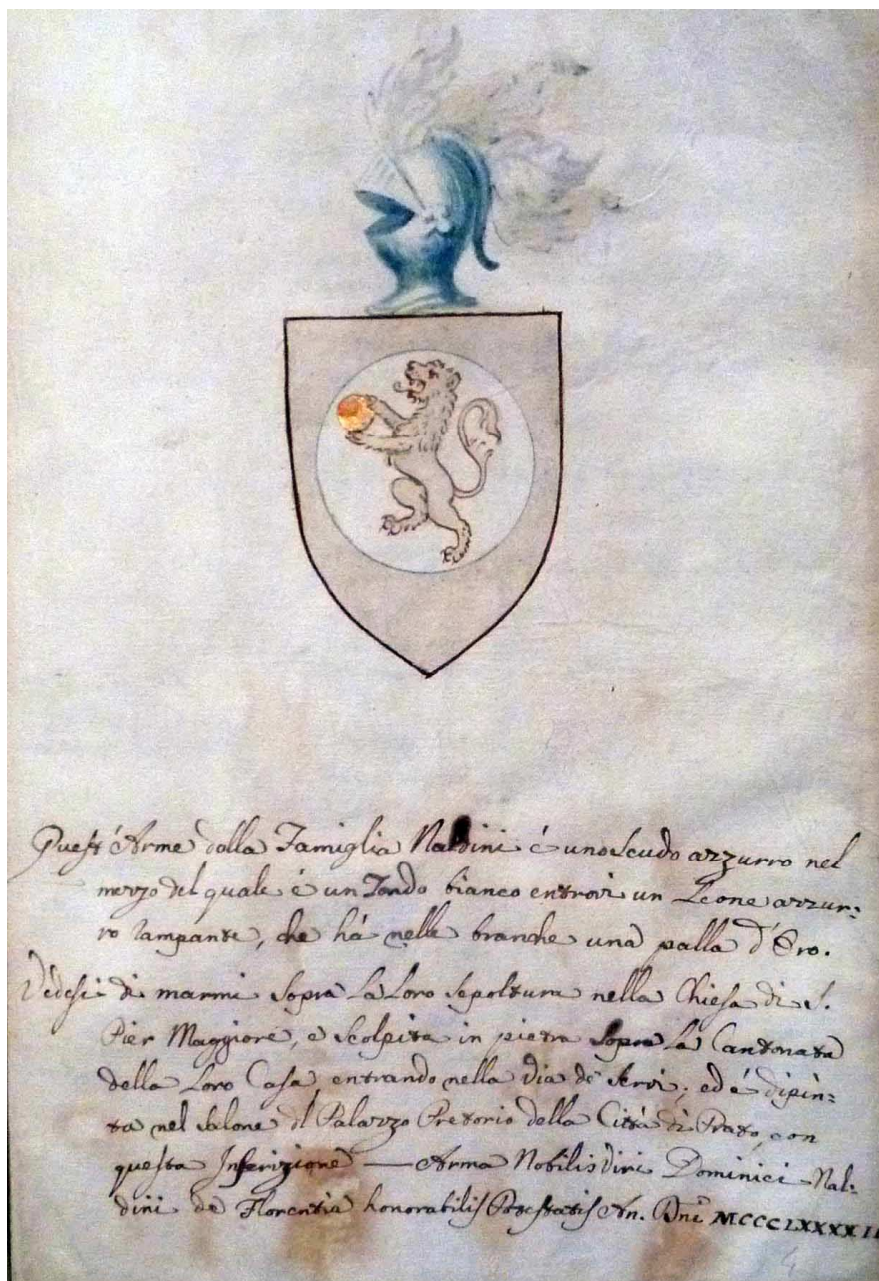 Quest'Arme dalla Famiglia Naldini é uno Scudo azzurro nel
mezzo del quale é un Tondo bianco entrovi un Leone azzur=
ro rampante, che há nelle branche una palla d'Oro.
Vedesi di marmi sopra La Loro sepoltura nella Chiesa di S.
Pier Maggiore, e scolpita in pietra sopra La Cantonata
della Loro Casa entrando nella Via de Servi; ed é dipin=
ta nel Salone dl Palazzo Pretorio della Cittá di Prato, con
questa Inscrizione — Arma Nobilis Viri Dominici Nal=
dini de Florentia honorabilis Potestatis An. Dni MCCCLXXXXII